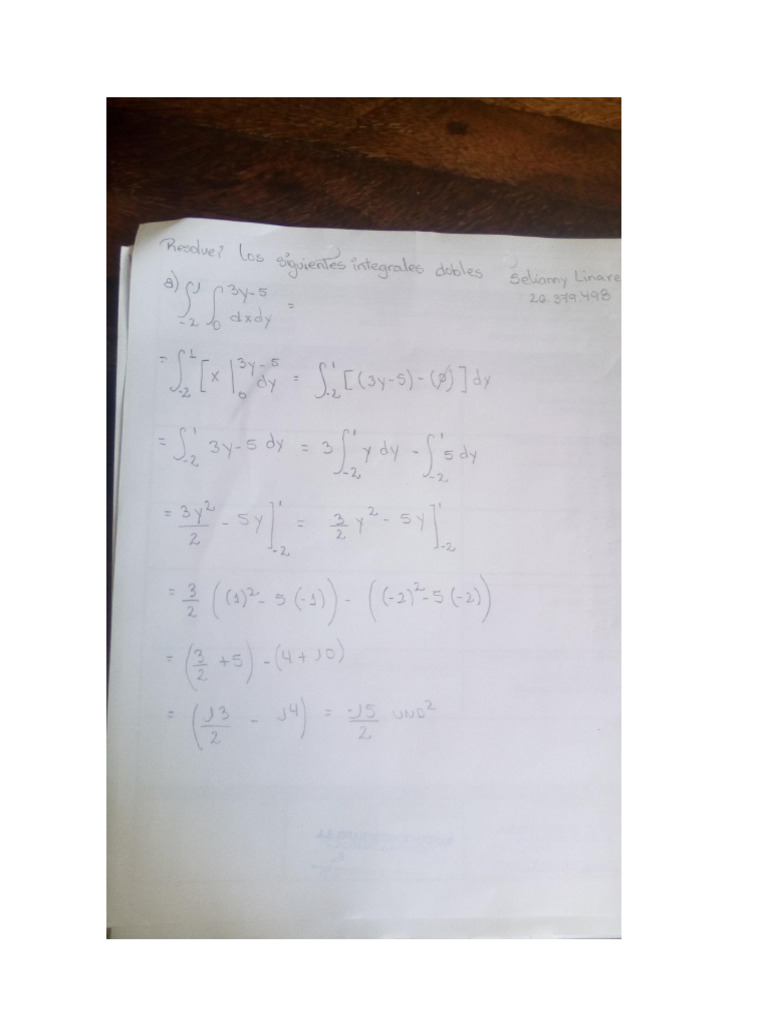 Resolver Los siguientes integrales dobles Selianny Linare
20.379.498
a) ∫₋₂¹ ∫₀^(3y-5) dxdy =
= ∫₋₂¹ [x |₀^(3y-5) dy = ∫₋₂¹ [(3y-5)-(0)] dy
= ∫₋₂¹ 3y-5 dy = 3 ∫₋₂¹ y dy - ∫₋₂¹ 5 dy
= 3y²/2 - 5y ]₋₂¹ = 3/2 y² - 5y ]₋₂¹
= 3/2 ((1)² - 5 (-1)) - ((-2)² - 5 (-2))
= (3/2 + 5) - (4 + 10)
= (13/2 - 14) = -15/2 UND²